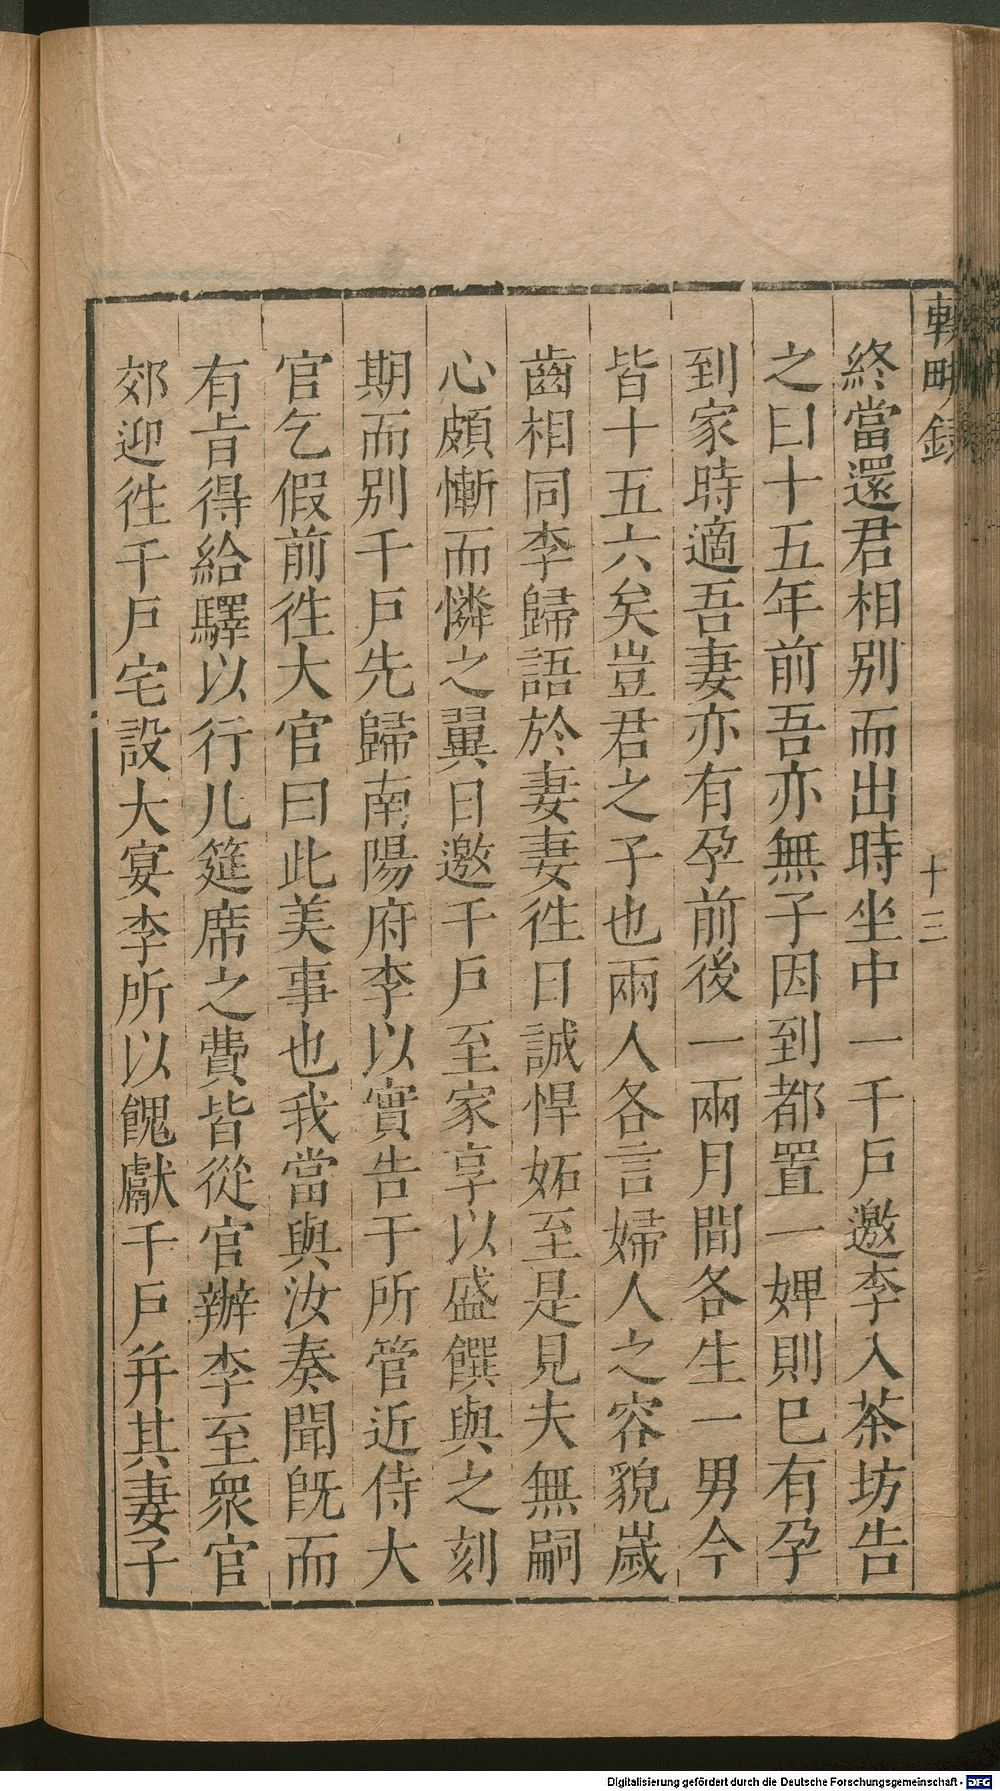 輟畊錄
十三
終當還君相別而出時坐中一千戶邀李入茶坊告
之曰十五年前吾亦無子因到都置一婢則巳有孕
到家時適吾妻亦有孕前後一兩月間各生一男今
皆十五六矣豈君之子也兩人各言婦人之容貌歲
齒相同李歸語於妻妻徃日誠悍妬至是見夫無嗣
心頗慚而憐之翼日邀千戶至家享以盛饌與之刻
期而別千戶先歸南陽府李以實告于所管近侍大
官乞假前徃大官曰此美事也我當與汝奏聞旣而
有㫖得給驛以行凡筵席之費皆從官辦李至衆官
郊迎徃千戶宅設大宴李所以餽獻千戶并其妻子
Digitalisierung gefördert durch die Deutsche Forschungsgemeinschaft - DFG